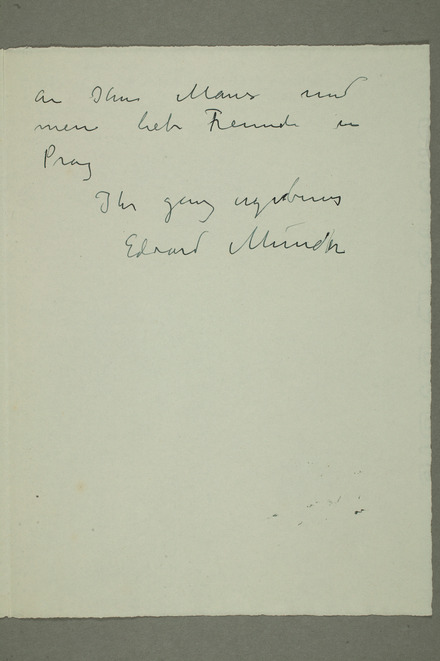 an Ihnen Manes und
mein liebe Freunde in
Prag
Ihr ganz ergebenes
Edvard Munch